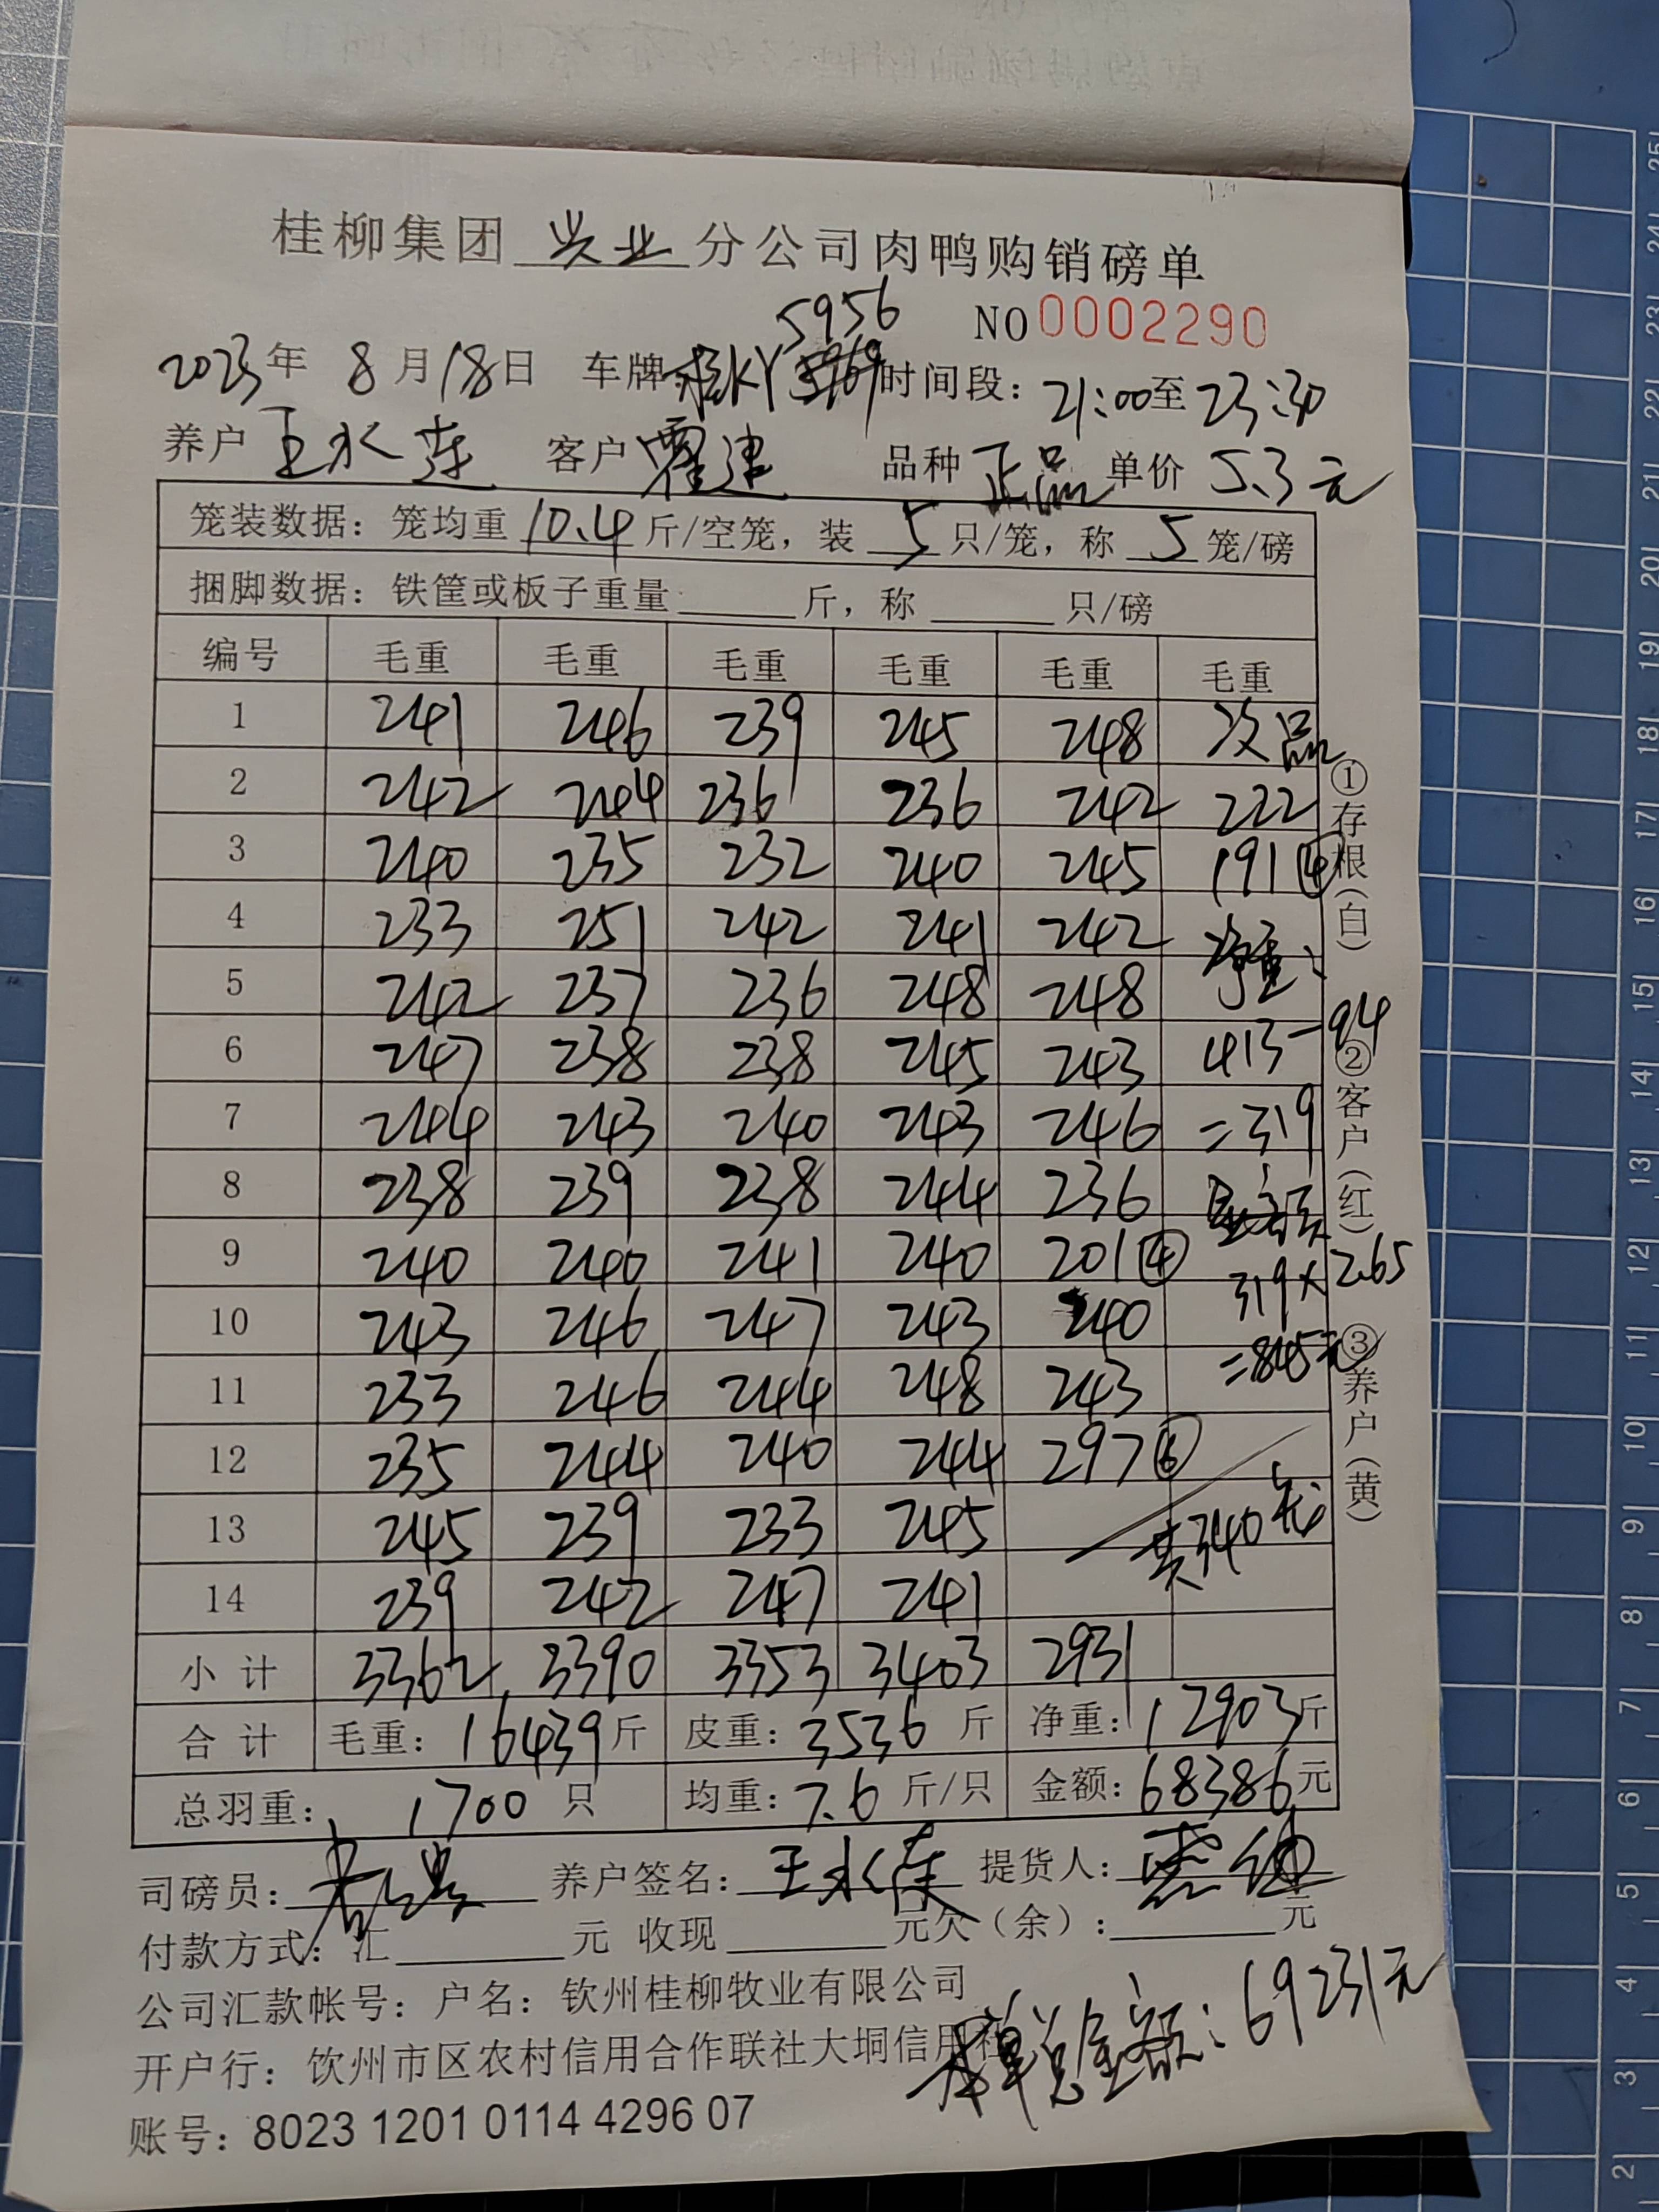 桂柳集团 兴业 分公司肉鸭购销磅单
NO 0002290
5956
2023年 8月18日 车牌:桂KY 时间段:21:00至23:30
养户 王水莲 客户 霍建 品种 正品 单价 5.3元
笼装数据:笼均重 10.4 斤/空笼,装 5 只/笼,称 5 笼/磅
捆脚数据:铁筐或板子重量 斤,称 只/磅
编号 毛重 毛重 毛重 毛重 毛重 毛重
1 241 246 239 245 248 次品
2 242 244 236 236 242 222
3 240 235 232 240 245 191④
4 233 251 242 241 242 净重:
5 242 237 236 248 248
6 247 238 238 245 243 413-94
7 244 243 240 243 246 =319
8 238 239 238 244 236 金额
9 240 240 241 240 201④ 319×2.65
10 243 246 247 243 240
11 233 246 244 248 243 =845元
12 235 244 240 244 297⑥
13 245 239 233 245 共340笼
14 239 242 247 241
小计 3362 3390 3353 3403 2931
合计 毛重:16439斤 皮重:3536斤 净重:12903斤
总羽重:1700只 均重:7.6斤/只 金额:68386元
①存根(白) ②客户(红) ③养户(黄)
司磅员: 养户签名:王水莲 提货人:
付款方式:汇 元 收现 元欠(余): 元
公司汇款帐号:户名:钦州桂柳牧业有限公司
开户行:钦州市区农村信用合作联社大垌信用社
单总金额:69231元
账号:8023 1201 0114 4296 07